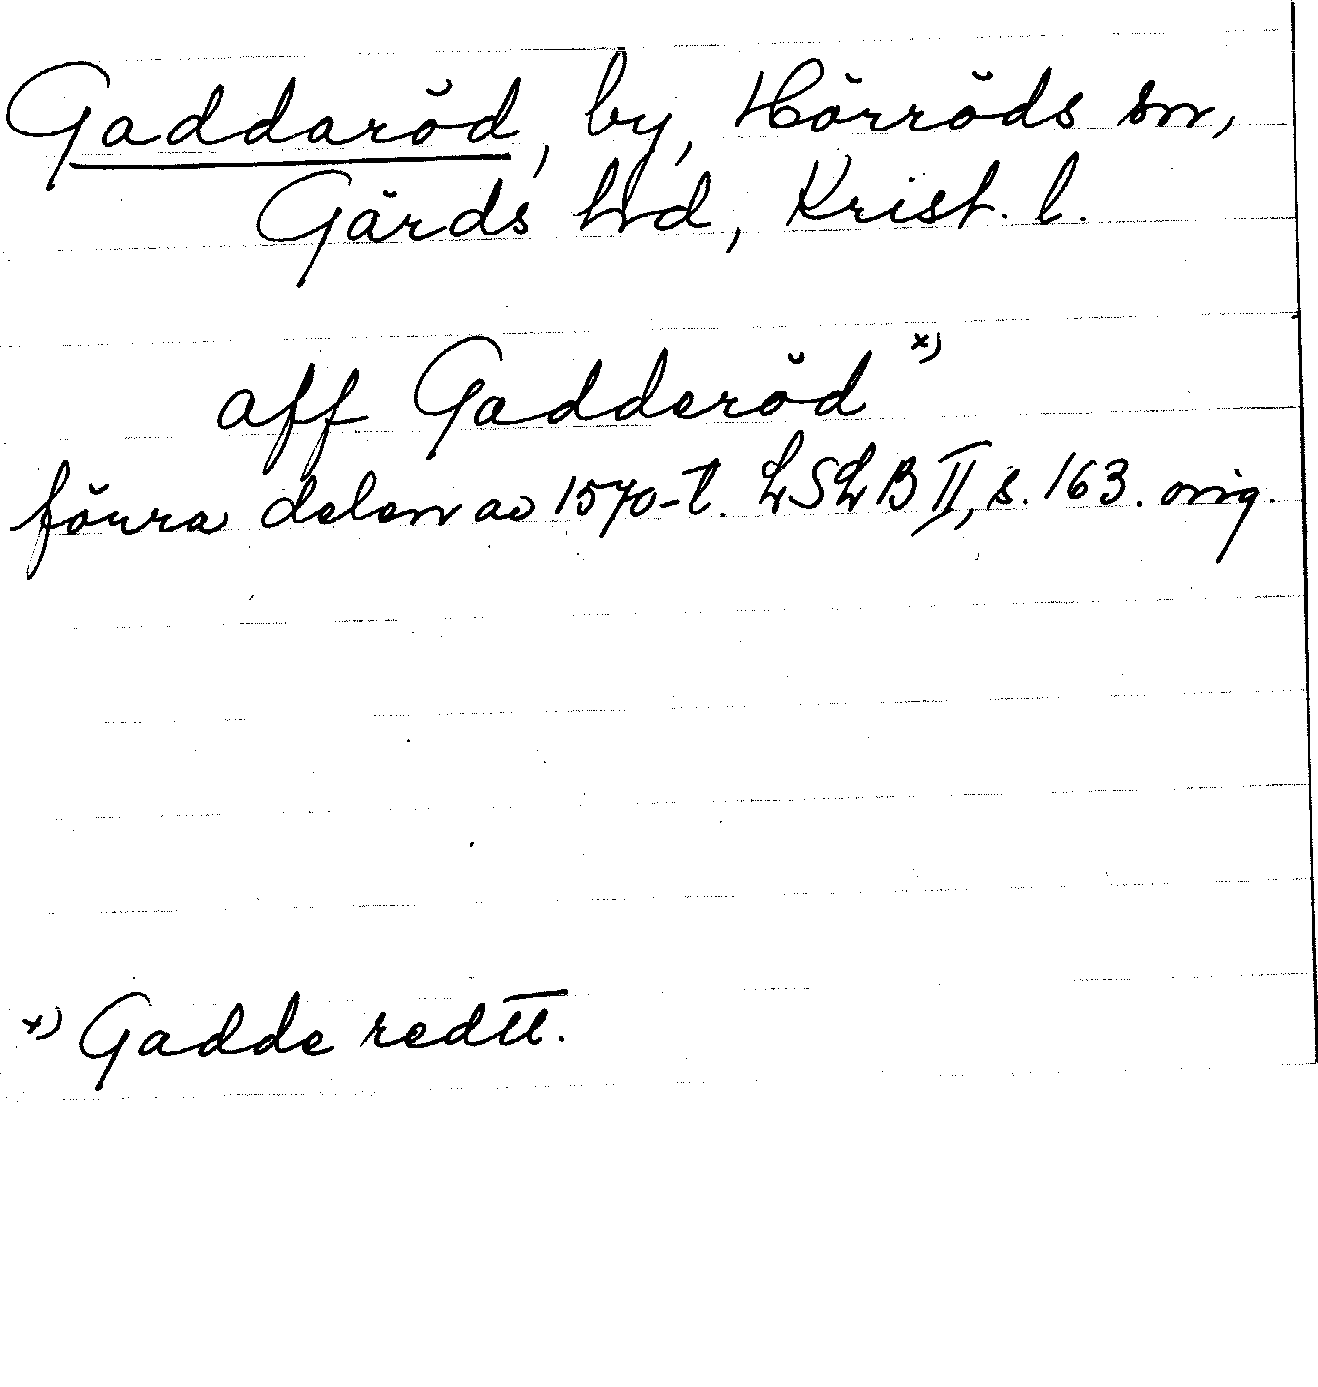 Gaddaröd, by, Hörröds sn,
Gärds hd, Krist. l.
aff Gadderöd x)
förra delen av 1570-t. LSLB II, s. 163. orig.
x) Gadde redtt.